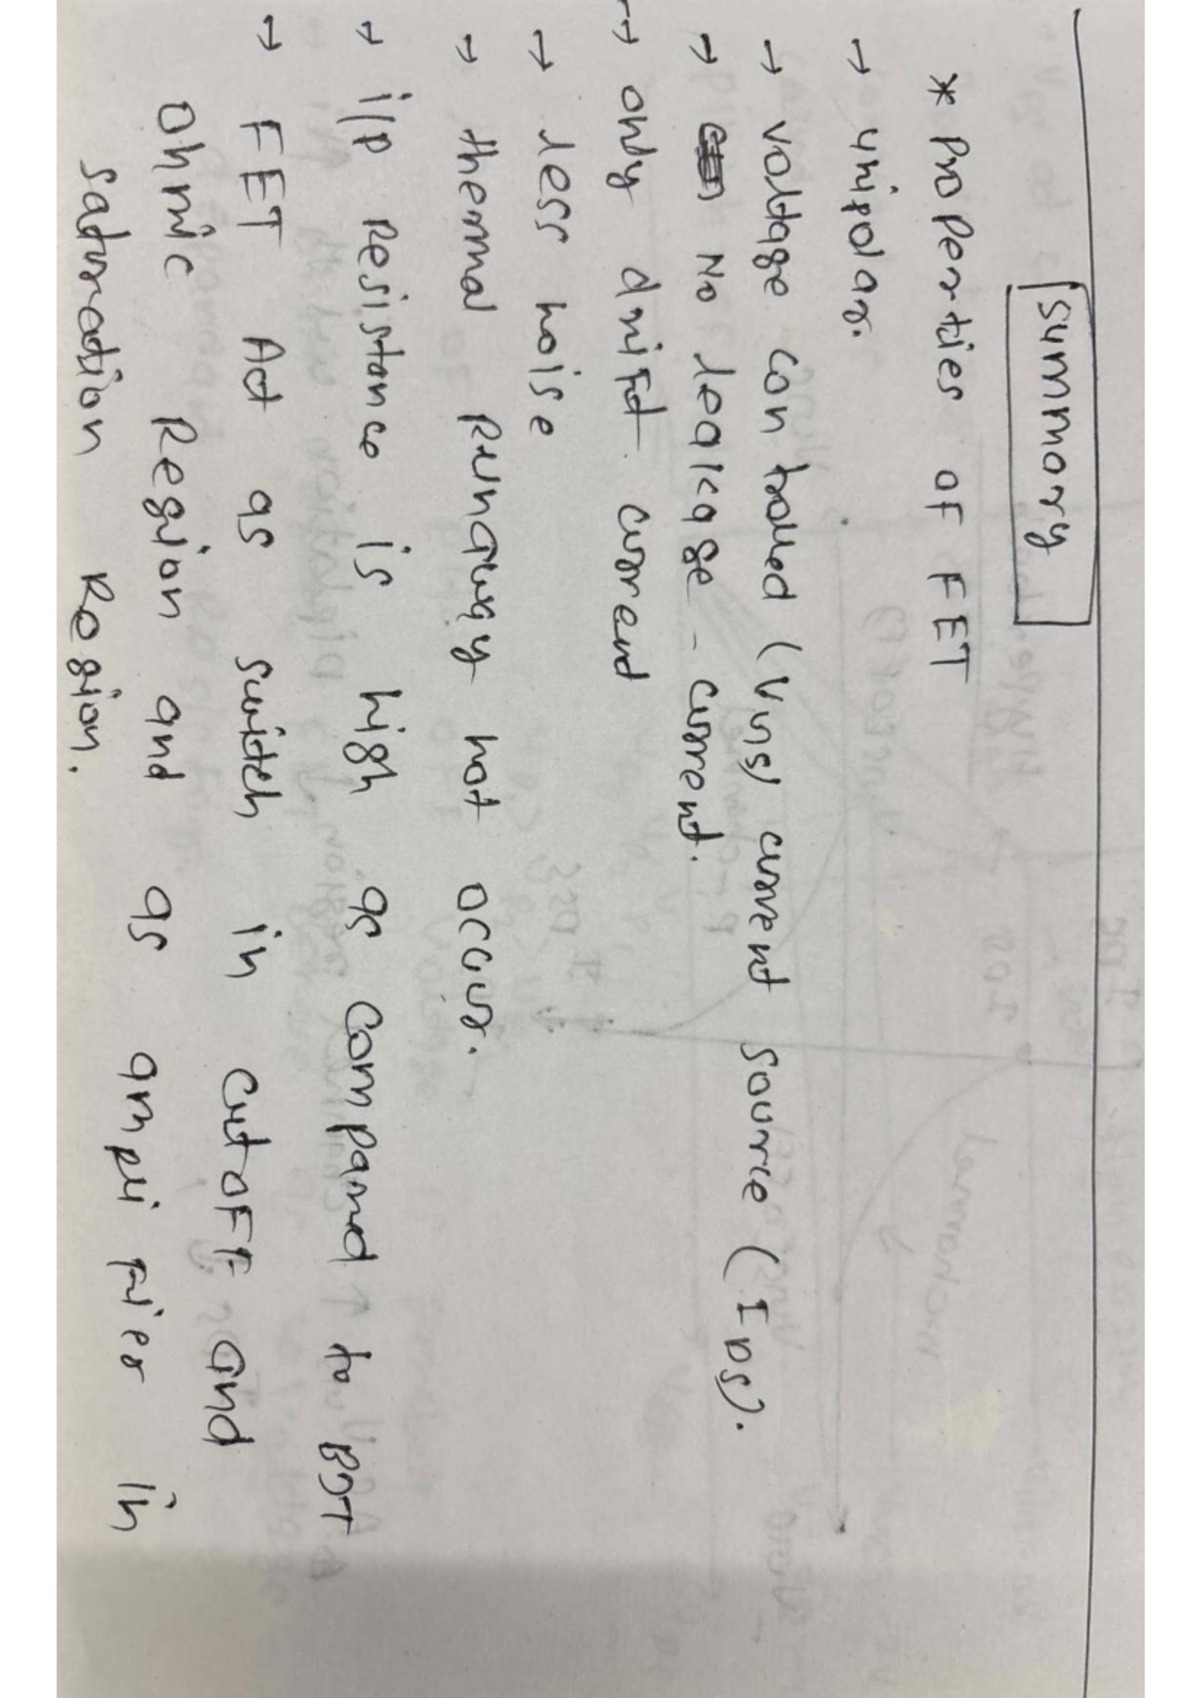 Summory
* Properties of FET
→ unipolar.
→ voltage controlled (VGS) current source (IDS).
→ No leakage - current.
→ only drift current
→ less noise
→ thermal Runaway not occur.
→ i/p Resistance is high as compared to BJT
→ FET Act as switch in cutoff and
ohmic Region and as amplifier in
saturation Region.